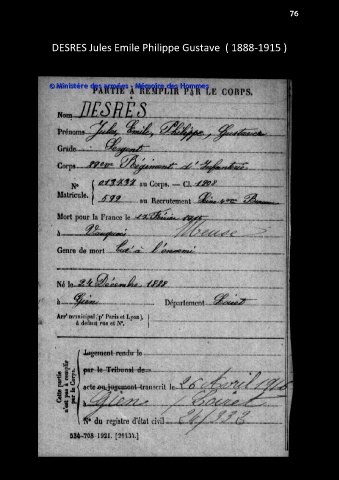 76
DESRES Jules Emile Philippe Gustave ( 1888-1915 )
© Ministère des armées - Mémoire des Hommes
PARTIE À REMPLIR PAR LE CORPS.
Nom DESRÈS
Prénoms Jules, Emile, Philippe, Gustave
Grade Sergent
Corps Régiment d'Infanterie
N° Matricule. { au Corps. — Cl. 1908
599 au Recrutement
Mort pour la France le 17 Février 1915
à Vauquois Meuse
Genre de mort Tué à l'ennemi
Né le 24 Décembre 1888
à Gien Département Loiret
Arr municipal (p' Paris et Lyon), à défaut rue et N°.
Cette partie n'est pas à remplir par le Corps.
Jugement rendu le
par le Tribunal de
acte ou jugement transcrit le 26 Avril
à Gien Loiret
N° du registre d'état civil
534-708-1921. [26434.]